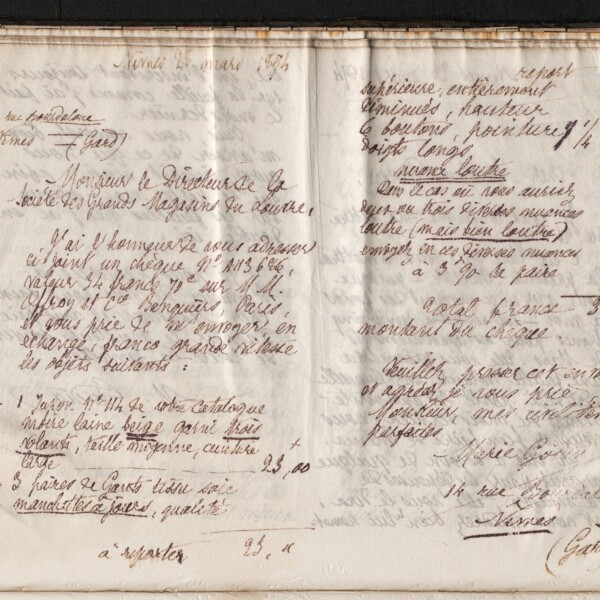 Nîmes 28 mars 1894
rue Bourdaloue
Nîmes (Gard)
Monsieur le Directeur de la
Société des Grands Magasins du Louvre,
J'ai l'honneur de vous adresser
ci joint un chèque N° A113626,
valeur 34 francs 70 c sur M.M.
Offroy et Cie Banquiers, Paris,
et vous prie de m'envoyer en
échange, franco grande vitesse
les objets suivants :
1 Jupon N° 114 de votre catalogue
moire laine beige garni trois
volants, taille moyenne, ceinture
large 23,00
3 paires de Gants tissu soie
manchettes à jours, qualité
à reporter 23,"
report
supérieure, entièrement
diminués, hauteur
6 boutons, pointure 7 1/4
doigts longs
nuance loutre
Dans le cas où vous auriez
deux ou trois diverses nuances
loutre (mais bien loutre)
envoyez en ces diverses nuances
à 3 90 la paire
Total francs 3
montant du chèque.
Veuillez presser cet en
et agréer je vous prie
Monsieur, mes civilités
parfaites
Marie
14 rue
Nîmes
(Gar